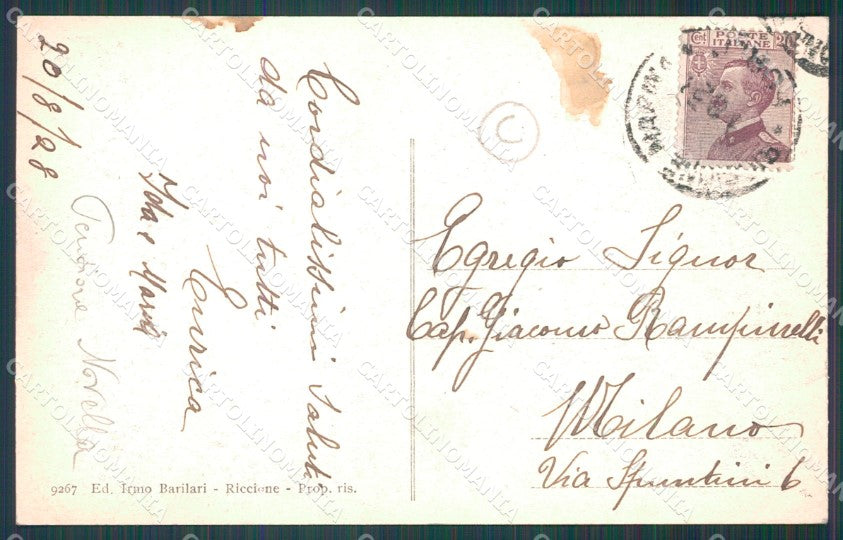 20/8/28
Cordialissimi Saluti
da noi tutti
Enrica
Maria
Pensione Novella
9267 Ed. Irmo Barilari - Riccione - Prop. ris.
POSTE
ITALIANE
Egregio Signor
Cap. Giacomo Rampinelli
Milano
Via Spuntini 6
CARTOLINOMANIA